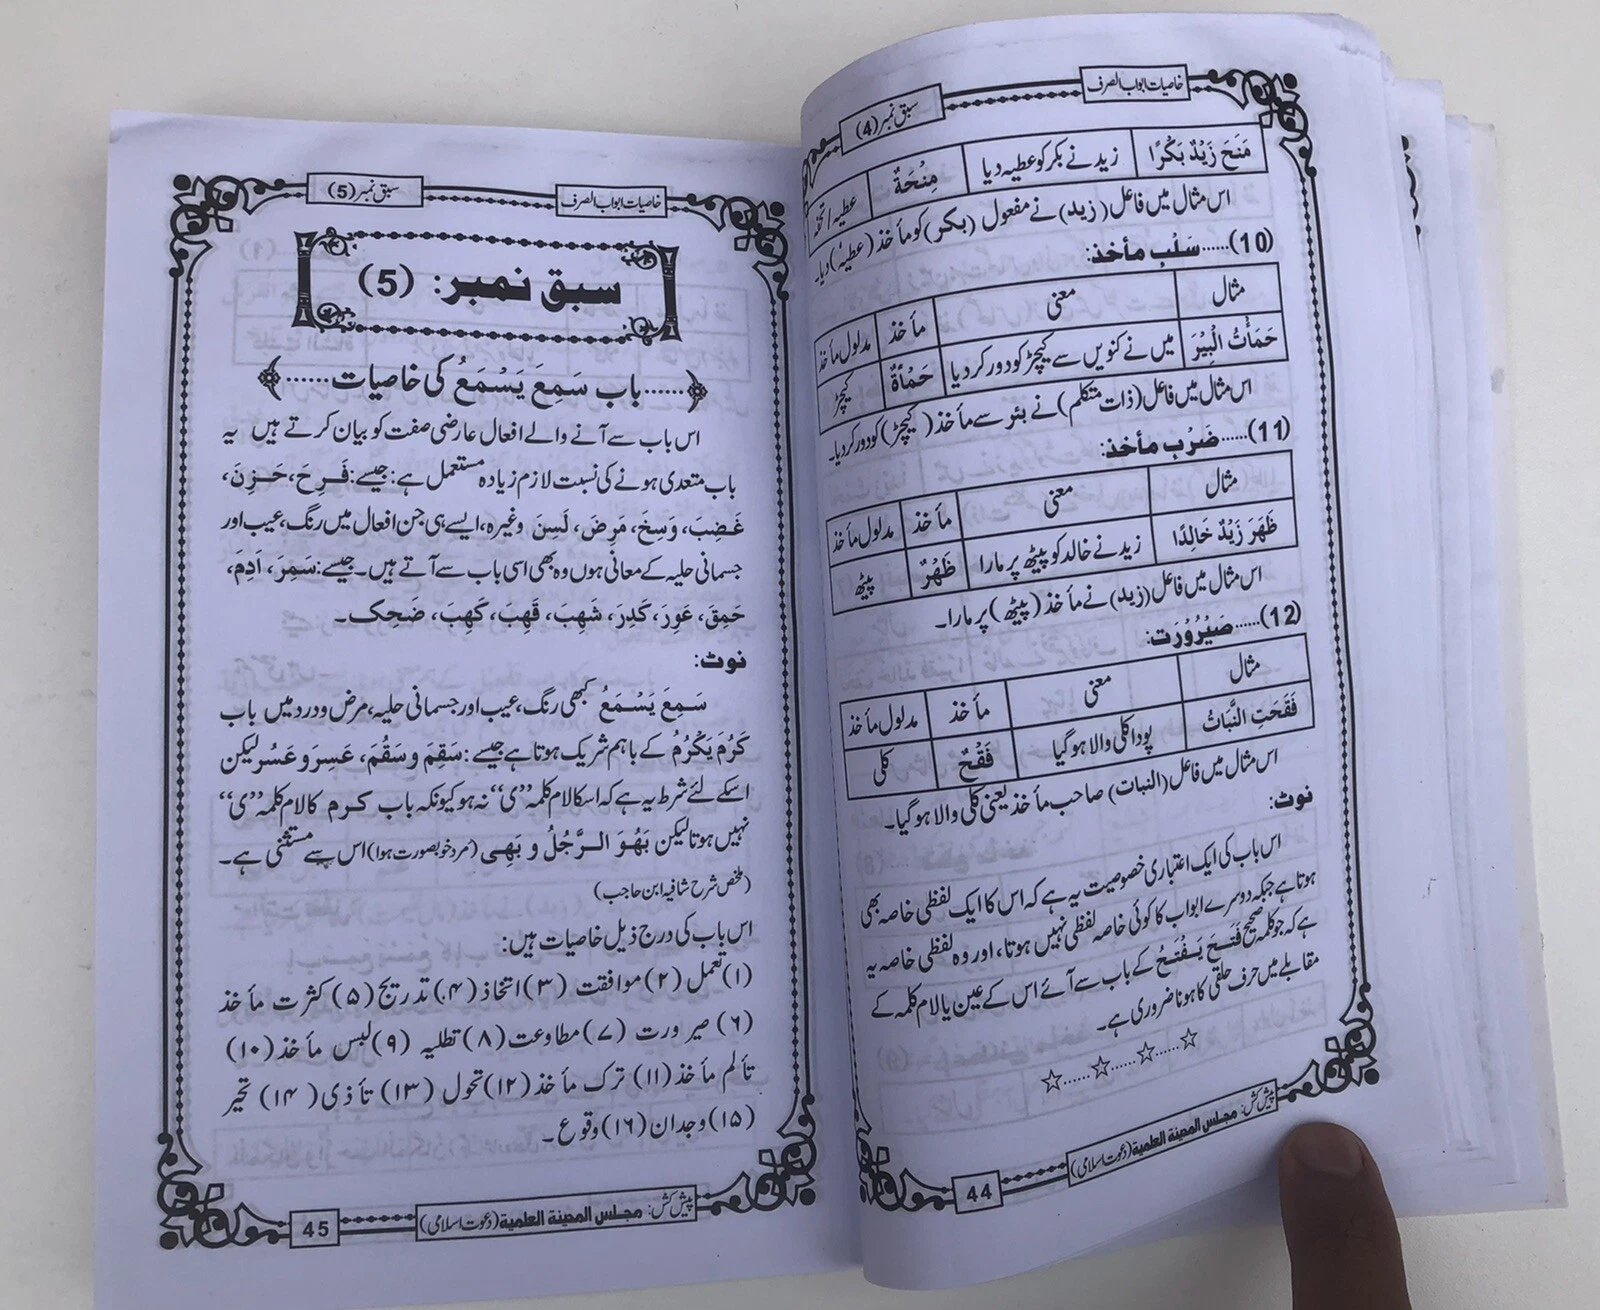 خاصیات ابواب الصرف
سبق نمبر (4)
مَنَحَ زَیْدٌ بَکْرًا زید نے بکر کو عطیہ دیا مِنْحَةٌ عطیہ
اس مثال میں فاعل (زید) نے مفعول (بکر) کو مأخذ (عطیہ) دیا۔
(10)......سَلْب مأخذ:
مثال معنی مأخذ مدلول مأخذ
حَمَأْتُ الْبِیْرَ میں نے کنویں سے کیچڑ کو دور کر دیا حَمْأَةٌ کیچڑ
اس مثال میں فاعل (ذات متکلم) نے بئر سے مأخذ (کیچڑ) کو دور کر دیا۔
(11)......ضَرْب مأخذ:
مثال معنی مأخذ مدلول مأخذ
ظَهَرَ زَیْدٌ خَالِدًا زید نے خالد کو پیٹھ پر مارا ظَهْرٌ پیٹھ
اس مثال میں فاعل (زید) نے مأخذ (پیٹھ) پر مارا۔
(12)......صَیْرُوْرَت:
مثال معنی مأخذ مدلول مأخذ
فَقَحَتِ النَّبَاتُ پودا کلی والا ہو گیا فَقْحٌ کلی
اس مثال میں فاعل (النبات) صاحب مأخذ یعنی کلی والا ہو گیا۔
نوٹ:
اس باب کی ایک اعتباری خصوصیت یہ ہے کہ اس کا ایک لفظی خاصہ بھی
ہوتا ہے جبکہ دوسرے ابواب کا کوئی خاصہ لفظی نہیں ہوتا، اور وہ لفظی خاصہ یہ
ہے کہ جو کلمہ صحیح فَتَحَ یَفْتَحُ کے باب سے آئے اس کے عین یا لام کلمہ کے
مقابلے میں حرف حلقی کا ہونا ضروری ہے۔
☆......☆......☆......☆
پیش کش: مجلس المدینة العلمیة (دعوت اسلامی)
44
خاصیات ابواب الصرف
سبق نمبر (5)
سبق نمبر: (5)
......باب سَمِعَ یَسْمَعُ کی خاصیات......
اس باب سے آنے والے افعال عارضی صفت کو بیان کرتے ہیں یہ
باب متعدی ہونے کی نسبت لازم زیادہ مستعمل ہے: جیسے: فَرِحَ، حَزِنَ،
غَضِبَ، وَسِخَ، مَرِضَ، لَسِنَ وغیرہ، ایسے ہی جن افعال میں رنگ، عیب اور
جسمانی حلیہ کے معانی ہوں وہ بھی اسی باب سے آتے ہیں۔ جیسے: سَمِرَ، اَدِمَ،
حَمِقَ، عَوِرَ، کَدِرَ، شَهِبَ، قَهِبَ، کَهِبَ، ضَحِکَ۔
نوٹ:
سَمِعَ یَسْمَعُ کبھی رنگ، عیب اور جسمانی حلیہ، مرض و درد میں باب
کَرُمَ یَکْرُمُ کے باہم شریک ہوتا ہے جیسے: سَقِمَ و سَقُمَ، عَسِرَ و عَسُرَ لیکن
اسکے لئے شرط یہ ہے کہ اسکا لام کلمہ ”ی“ نہ ہو کیونکہ باب کرم کا لام کلمہ ”ی“
نہیں ہوتا لیکن بَهُوَ الرَّجُلُ و بَهِی (مرد خوبصورت ہوا) اس سے مستثنی ہے۔
(ملخص شرح شافیه ابن حاجب)
اس باب کی درج ذیل خاصیات ہیں:
(۱) تعمل (۲) موافقت (۳) اتخاذ (۴) تدریج (۵) کثرت مأخذ
(۶) صیرورت (۷) مطاوعت (۸) تطلیہ (۹) لبس مأخذ (۱۰)
تألم مأخذ (۱۱) ترک مأخذ (۱۲) تحول (۱۳) تأذی (۱۴) تحیر
(۱۵) وجدان (۱۶) وقوع۔
پیش کش: مجلس المدینة العلمیة (دعوت اسلامی)
45